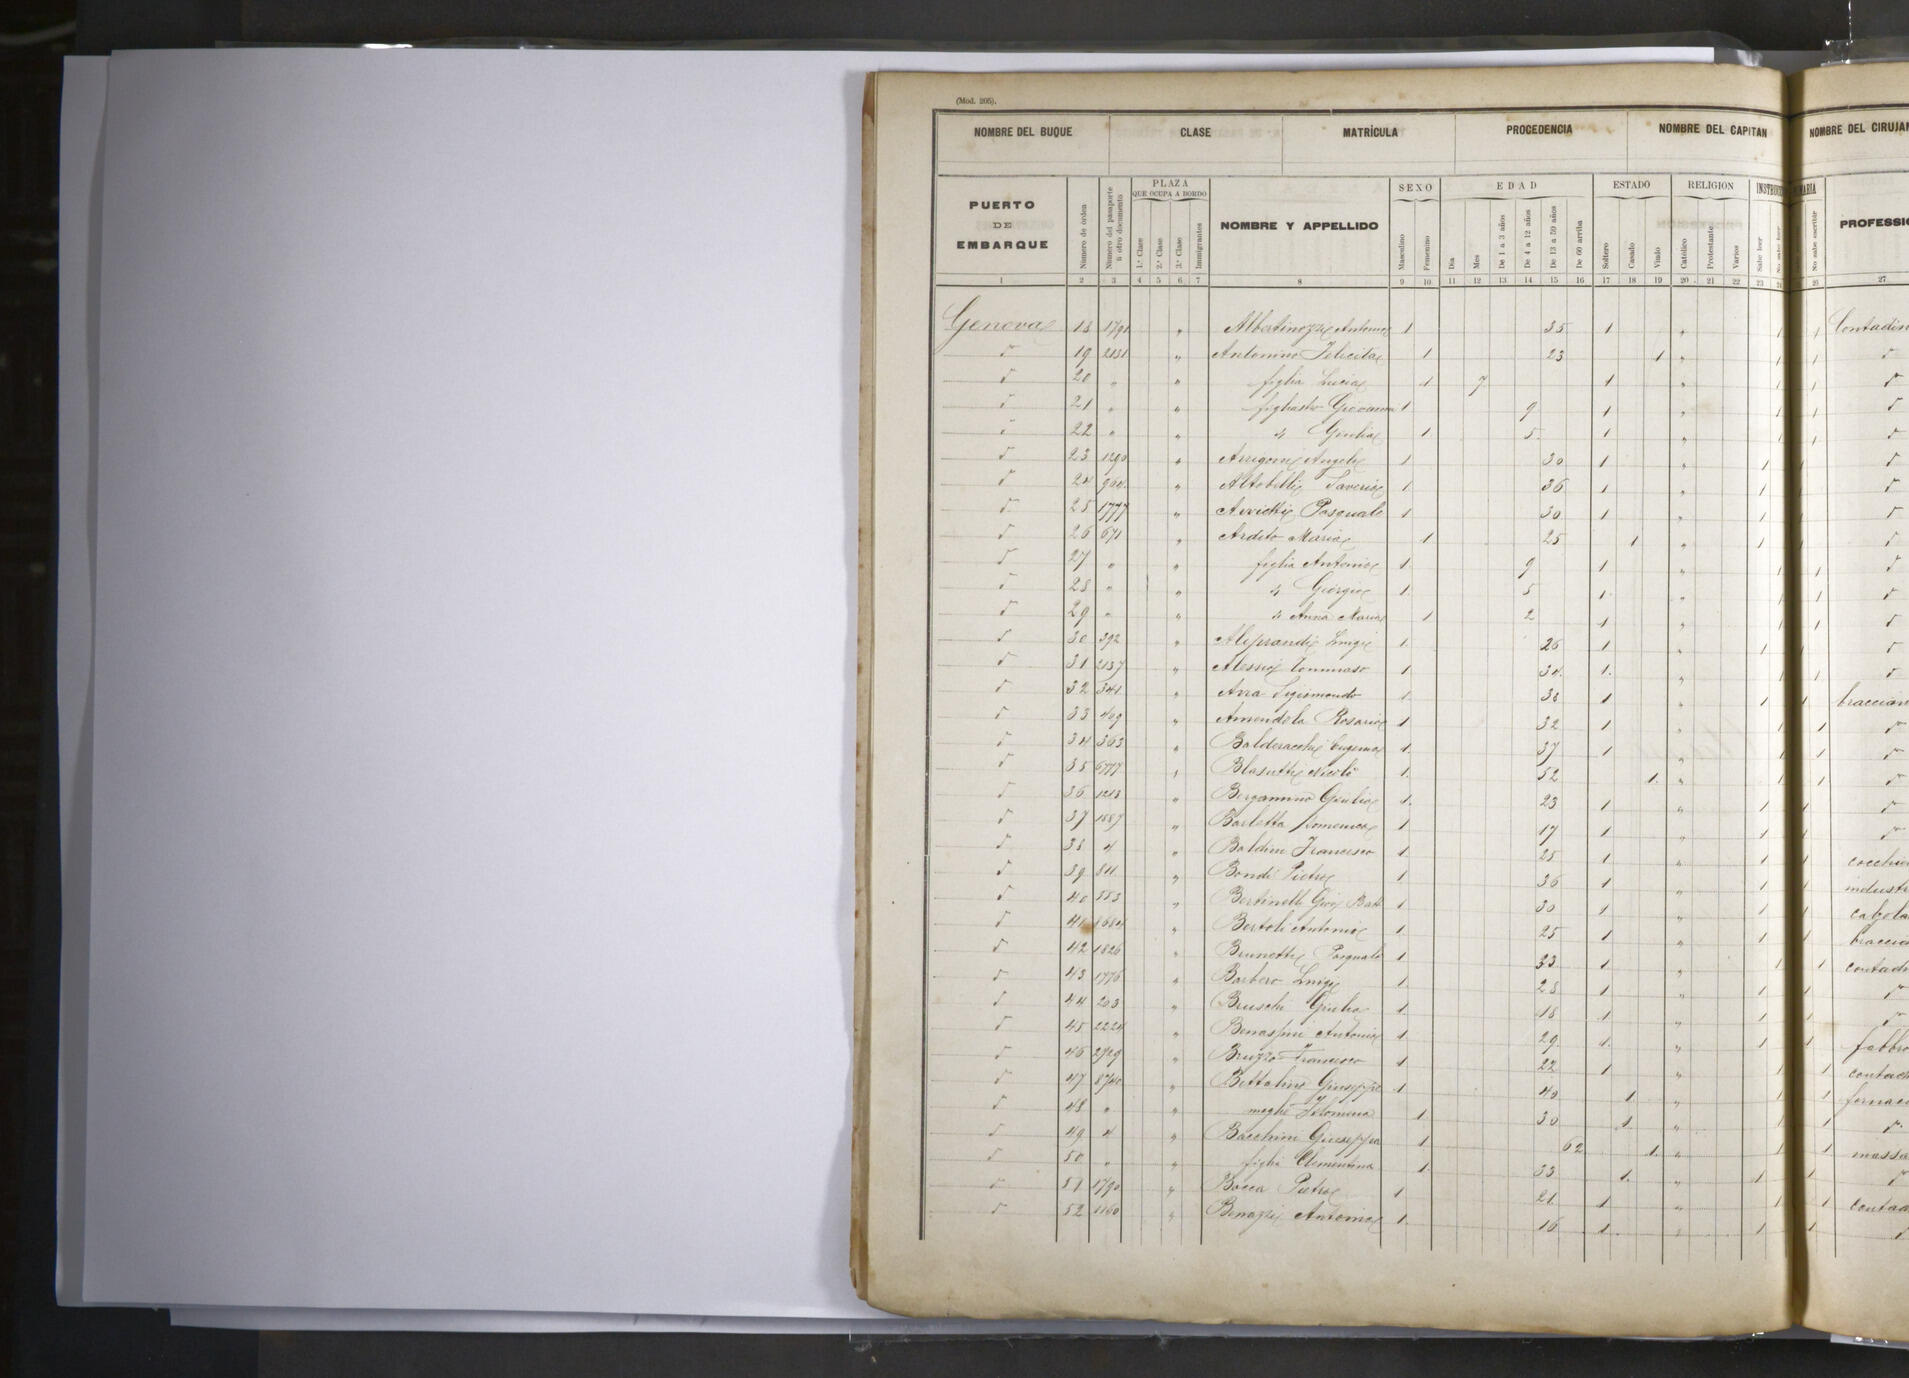 (Mod. 205).
NOMBRE DEL BUQUE CLASE MATRÍCULA PROCEDENCIA NOMBRE DEL CAPITAN NOMBRE DEL CIRUJAN
PUERTO DE EMBARQUE Número de orden Número del pasaporte ú otro documento PLAZA QUE OCUPA A BORDO 1.ª Clase 2.ª Clase 3.ª Clase Inmigrantes NOMBRE Y APPELLIDO SEXO Masculino Femenino EDAD Dia Mes De 1 a 3 años De 4 a 12 años De 13 a 59 años De 60 arriba ESTADO Soltero Casado Viudo RELIGION Católico Protestante Varios Sabe leer No sabe escribir PROFESSIO
1 2 3 4 5 6 7 8 9 10 11 12 13 14 15 16 17 18 19 20 21 22 23 26 27
Genova 18 1791 " Albertinozzi Antonio 1 35 1 " 1 1 Contadin
19 2131 " Antonino Felicita 1 23 1 " 1 1
20 " " figlia Lucia 1 7 1 " 1 1
21 " " figliastro Giovanni 1 9 1 " 1 1
22 " " " Giulia 1 5 1 " 1 1
23 1290 " Arrigoni Angelo 1 30 1 " 1 1
24 964 " Altobelli Saverio 1 36 1 " 1 1
25 1777 " Pasquale 1 30 1 " 1 1
26 671 " Ardito Maria 1 25 1 " 1 1
27 " " figlia Antonio 1 9 1 " 1 1
28 " " " Giorgio 1 5 1 " 1 1
29 " " " Anna Maria 1 2 1 " 1 1
30 392 " Aliprandi Luigi 1 26 1 " 1 1
31 2137 " Alessio Tommaso 1 34 1 " 1 1
32 341 " Arra Sigismondo 1 38 1 " 1 1 braccian
33 409 " Amendola Rosario 1 32 1 " 1 1
34 363 " Balderacchi Eugenio 1 37 1 " 1 1
35 6777 " Blasutti Nicolò 1 52 1 " 1 1
36 1213 " Bergamino Giulio 1 23 1 " 1 1
37 1887 " Barletta Domenico 1 17 1 " 1 1
38 4 " Baldini Francesco 1 25 1 " 1 1 cocchie
39 811 " Bondi Pietro 1 36 1 " 1 1 industr
40 553 " Bertinelli Gio. Batt 1 30 1 " 1 1 calzola
41 8684 " Bertoli Antonio 1 25 1 " 1 1 braccia
42 1826 " Brunetti Pasquale 1 33 1 " 1 1 contadi
43 1776 " Barbero Luigi 1 28 1 " 1 1
44 203 " Bruschi Giulio 1 18 1 " 1 1
45 2224 " Benassini Antonio 1 29 1 " 1 1 fabbro
46 2929 " Bruzzo Francesco 1 22 1 " 1 1 contad
47 8740 " Bettolini Giuseppe 1 40 1 " 1 1 fornac
48 " " moglie Filomena 1 30 1 " 1 1
49 4 " Bacchini Giuseppa 1 62 1 " 1 1 massa
50 " " figlia Clementina 1 33 1 " 1 1
51 1790 " Bocca Pietro 1 21 1 " 1 1 contad
52 1160 " Benazzi Antonio 1 16 1 " 1 1